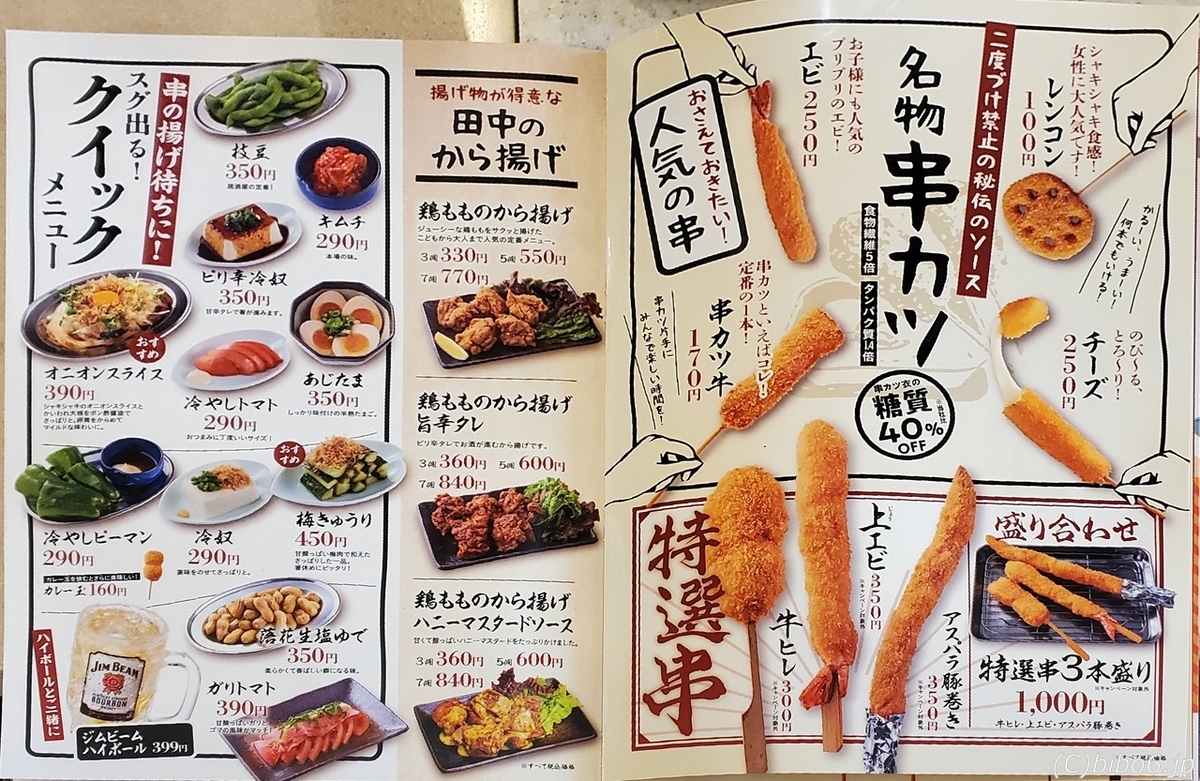 串の揚げ待ちに！
スグ出る！
クイック
メニュー
枝豆
350円
居酒屋の定番！
キムチ
290円
本場の味。
ピリ辛冷奴
350円
甘辛タレで箸が進みます。
おすすめ
オニオンスライス
390円
シャキシャキのオニオンスライスと
かいわれ大根をポン酢醤油で
さっぱりと。卵黄をからめて
マイルドな味わいに。
冷やしトマト
290円
おつまみに丁度いいサイズ！
あじたま
350円
しっかり味付けの半熟たまご。
冷やしピーマン
290円
カレー玉を挟むとさらに美味しい！
カレー玉160円
冷奴
290円
薬味をのせてさっぱりと。
おすすめ
梅きゅうり
450円
甘酸っぱい梅肉で和えた
さっぱりした一品。
箸休めにピッタリ！
落花生塩ゆで
350円
柔らかくて香ばしい癖になる味。
ハイボールとご一緒に
JIM BEAM
BOURBON
ジムビーム
ハイボール 399円
ガリトマト
390円
甘酸っぱいガリと
ゴマの風味がマッチ！
揚げ物が得意な
田中の
から揚げ
鶏もものから揚げ
ジューシーな鶏ももをサクッと揚げた
こどもから大人まで人気の定番メニュー。
3個 330円 5個 550円
7個 770円
鶏もものから揚げ
旨辛タレ
ピリ辛タレでお酒が進むから揚げです。
3個 360円 5個 600円
7個 840円
鶏もものから揚げ
ハニーマスタードソース
甘くて酸っぱいハニーマスタードをたっぷりかけました。
3個 360円 5個 600円
7個 840円
※すべて税込価格
二度づけ禁止の秘伝のソース
名物串カツ
食物繊維5倍
タンパク質1.4倍
串カツ衣の
糖質
※当社比
40%
OFF
おさえておきたい！
人気の串
お子様にも人気の
プリプリのエビ！
エビ 250円
シャキシャキ食感！
女性に大人気です！
レンコン
100円
かるーい、うまーい！
何本でもいける！
串カツといえばコレ！
定番の1本！
串カツ牛
170円
串カツ片手に
みんなで楽しい時間を！
のび〜る、
とろ〜り！
チーズ
250円
特選串
牛ヒレ 300円
※キャンペーン対象外
じょう
上エビ 350円
※キャンペーン対象外
アスパラ豚巻き
350円
※キャンペーン対象外
盛り合わせ
特選串3本盛り
※キャンペーン対象外
1,000円
牛ヒレ・上エビ・アスパラ豚巻き
※すべて税込価格
(C)bipo6.jp